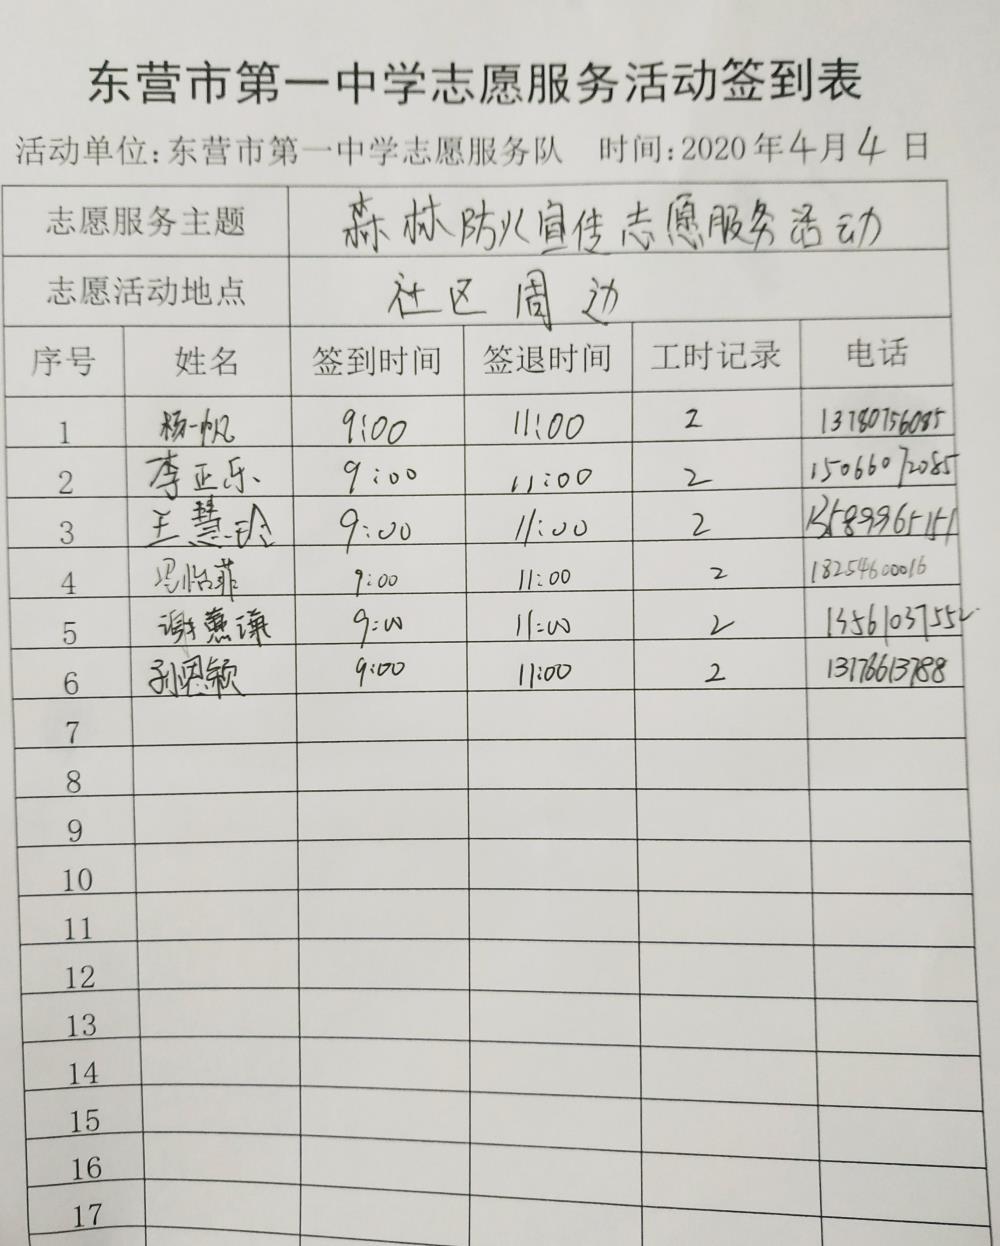 东营市第一中学志愿服务活动签到表
活动单位:东营市第一中学志愿服务队 时间:2020年4月4日
志愿服务主题 森林防火宣传志愿服务活动
志愿活动地点 社区周边
序号 姓名 签到时间 签退时间 工时记录 电话
1 杨一帆 9:00 11:00 2 13780756085
2 李正乐 9:00 11:00 2 15066072085
3 王慧玲 9:00 11:00 2 13589965151
4 冯怡菲 9:00 11:00 2 18254600016
5 谢蕙谦 9:00 11:00 2
6 孙恩颖 9:00 11:00 2 13176613788
7
8
9
10
11
12
13
14
15
16
17